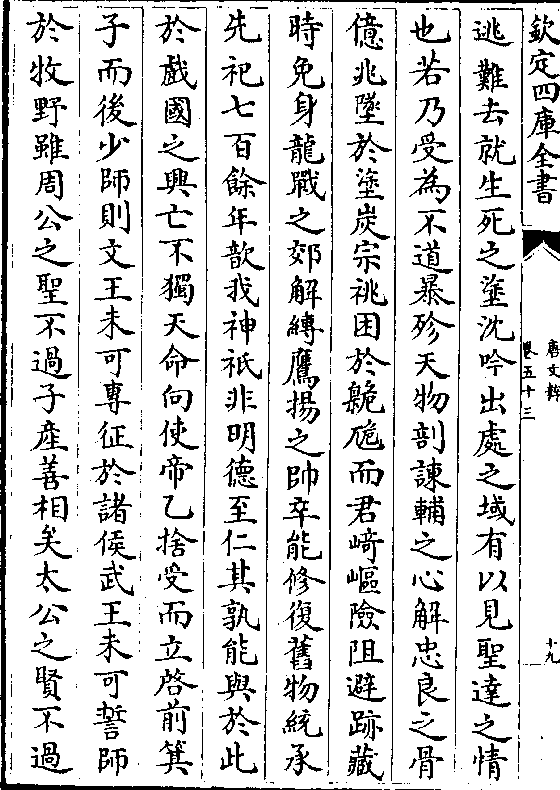 欽定四庫全書
唐文粹
卷五十三
十九
逃難去就生死之塗沈吟出處之域有以見聖達之情
也若乃受為不道暴殄天物剖諫輔之心解忠良之骨
億兆墜於塗炭宗祧困於臲卼而君﨑嶇險阻避跡藏
時免身龍戰之郊解縛鷹揚之帥卒能修復舊物統承
先祀七百餘年歆我神祇非明德至仁其孰能與於此
於戲國之興亡不獨天命向使帝乙捨受而立啓前箕
子而後少師則文王未可專征於諸侯武王未可誓師
於牧野雖周公之聖不過子産善相矣太公之賢不過